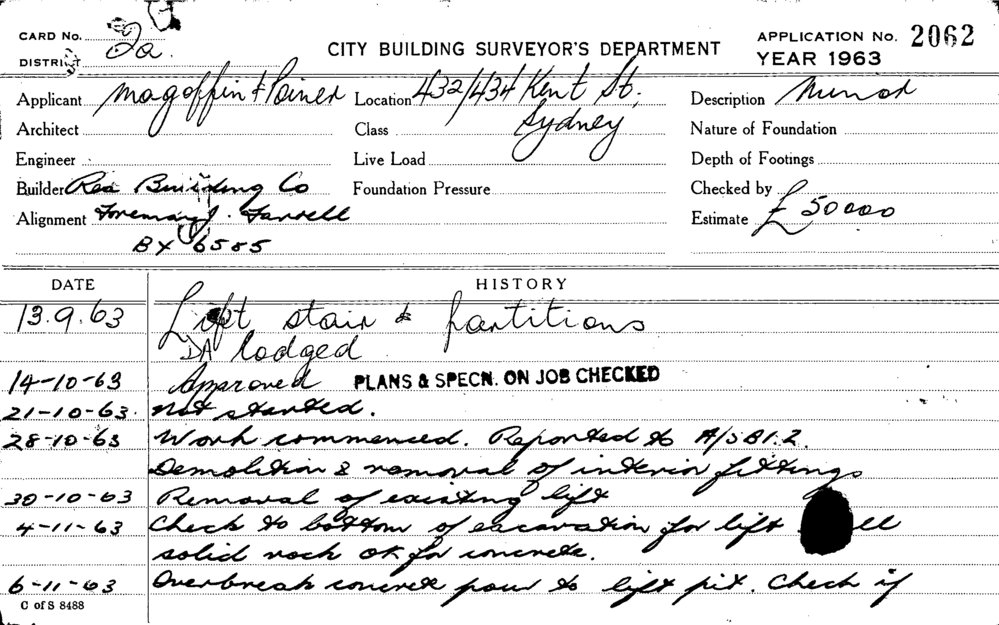 CARD No. 2a.
DISTRICT
CITY BUILDING SURVEYOR'S DEPARTMENT
APPLICATION No. 2062
YEAR 1963
Applicant Magoffin & Poiner Location 432/434 Kent St, Description Minor
Architect Class Sydney Nature of Foundation
Engineer Live Load Depth of Footings
Builder Rex Building Co Foundation Pressure Checked by
Alignment Foreman J. Farrell Estimate £50000
BX 6585
DATE HISTORY
13.9.63 Lift stair & partitions
DA lodged
14-10-63 Approved PLANS & SPECN. ON JOB CHECKED
21-10-63. Not started.
28-10-63 Work commenced. Reported to A/SBI.2.
Demolition & removal of interior fittings
30-10-63 Removal of existing lift
4-11-63 Check to bottom of excavation for lift
solid rock OK for concrete.
6-11-63 Overbreak concrete pour to lift pit. Check if
C of S 8488